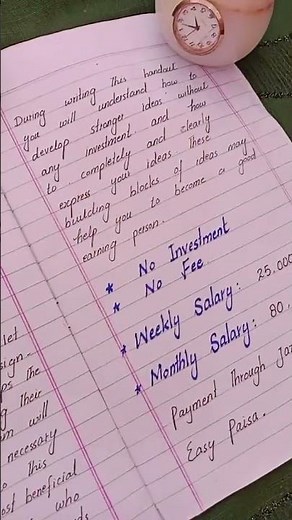 During writing this handout
you will understand how to
develop stronger ideas without
any investment and how
to completely and clearly
express your ideas these
building blocks of ideas may
help you to become a good
earning person.
* No Investment
* No Fee
* Weekly Salary: 25.000
* Monthly Salary: 80.
Payment Through Jaz
Easy Paisa.
let
sign.
ps the
g their
m will
necessary
o this
ost beneficial
who
ds